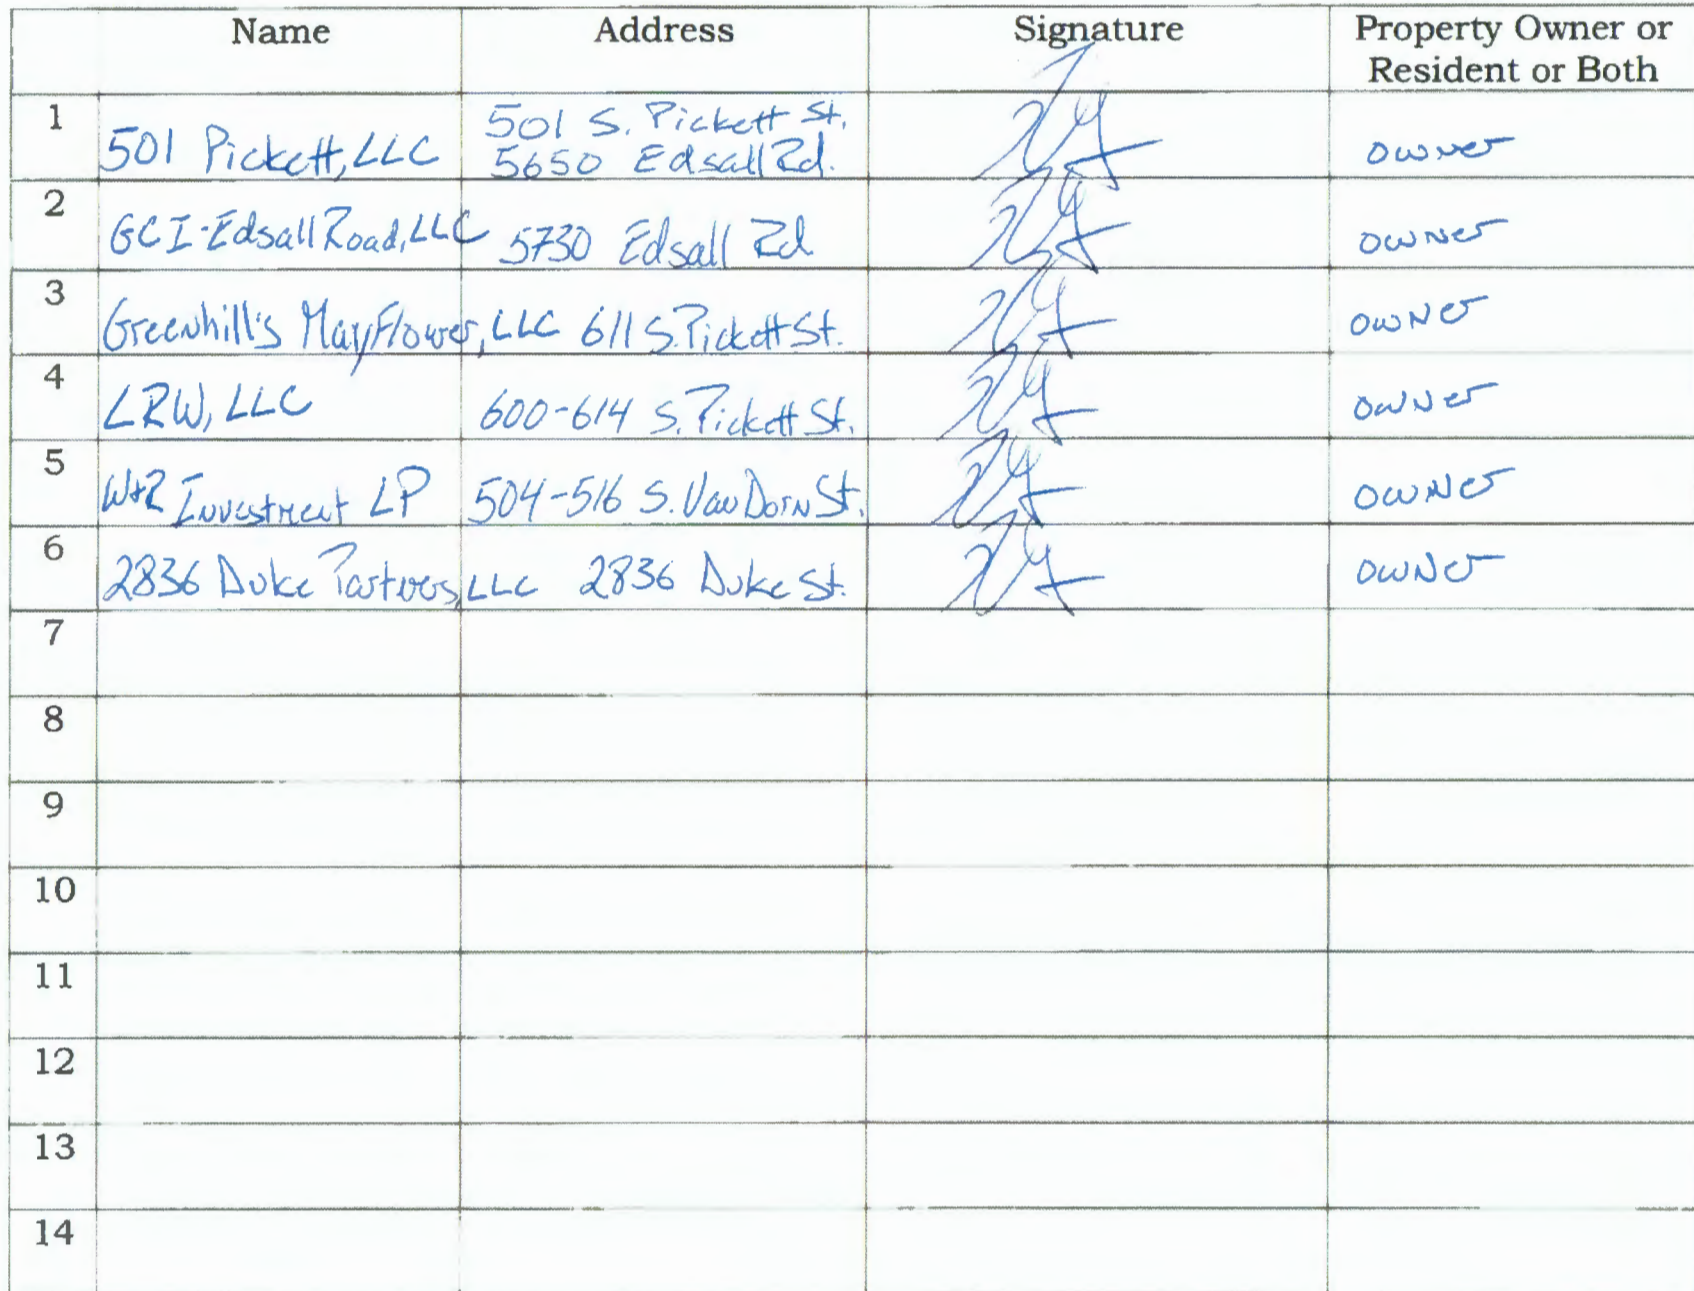 Name Address Signature Property Owner or
Resident or Both
1 501 Pickett, LLC 501 S. Pickett St. owner
5650 Edsall Rd.
2 GCI-Edsall Road, LLC 5730 Edsall Rd owner
3 Greenhill's Mayflower, LLC 611 S. Pickett St. owner
4 LRW, LLC 600-614 S. Pickett St. owner
5 W+R Investment LP 504-516 S. Van Dorn St. owner
6 2836 Duke Partners, LLC 2836 Duke St. owner
7
8
9
10
11
12
13
14